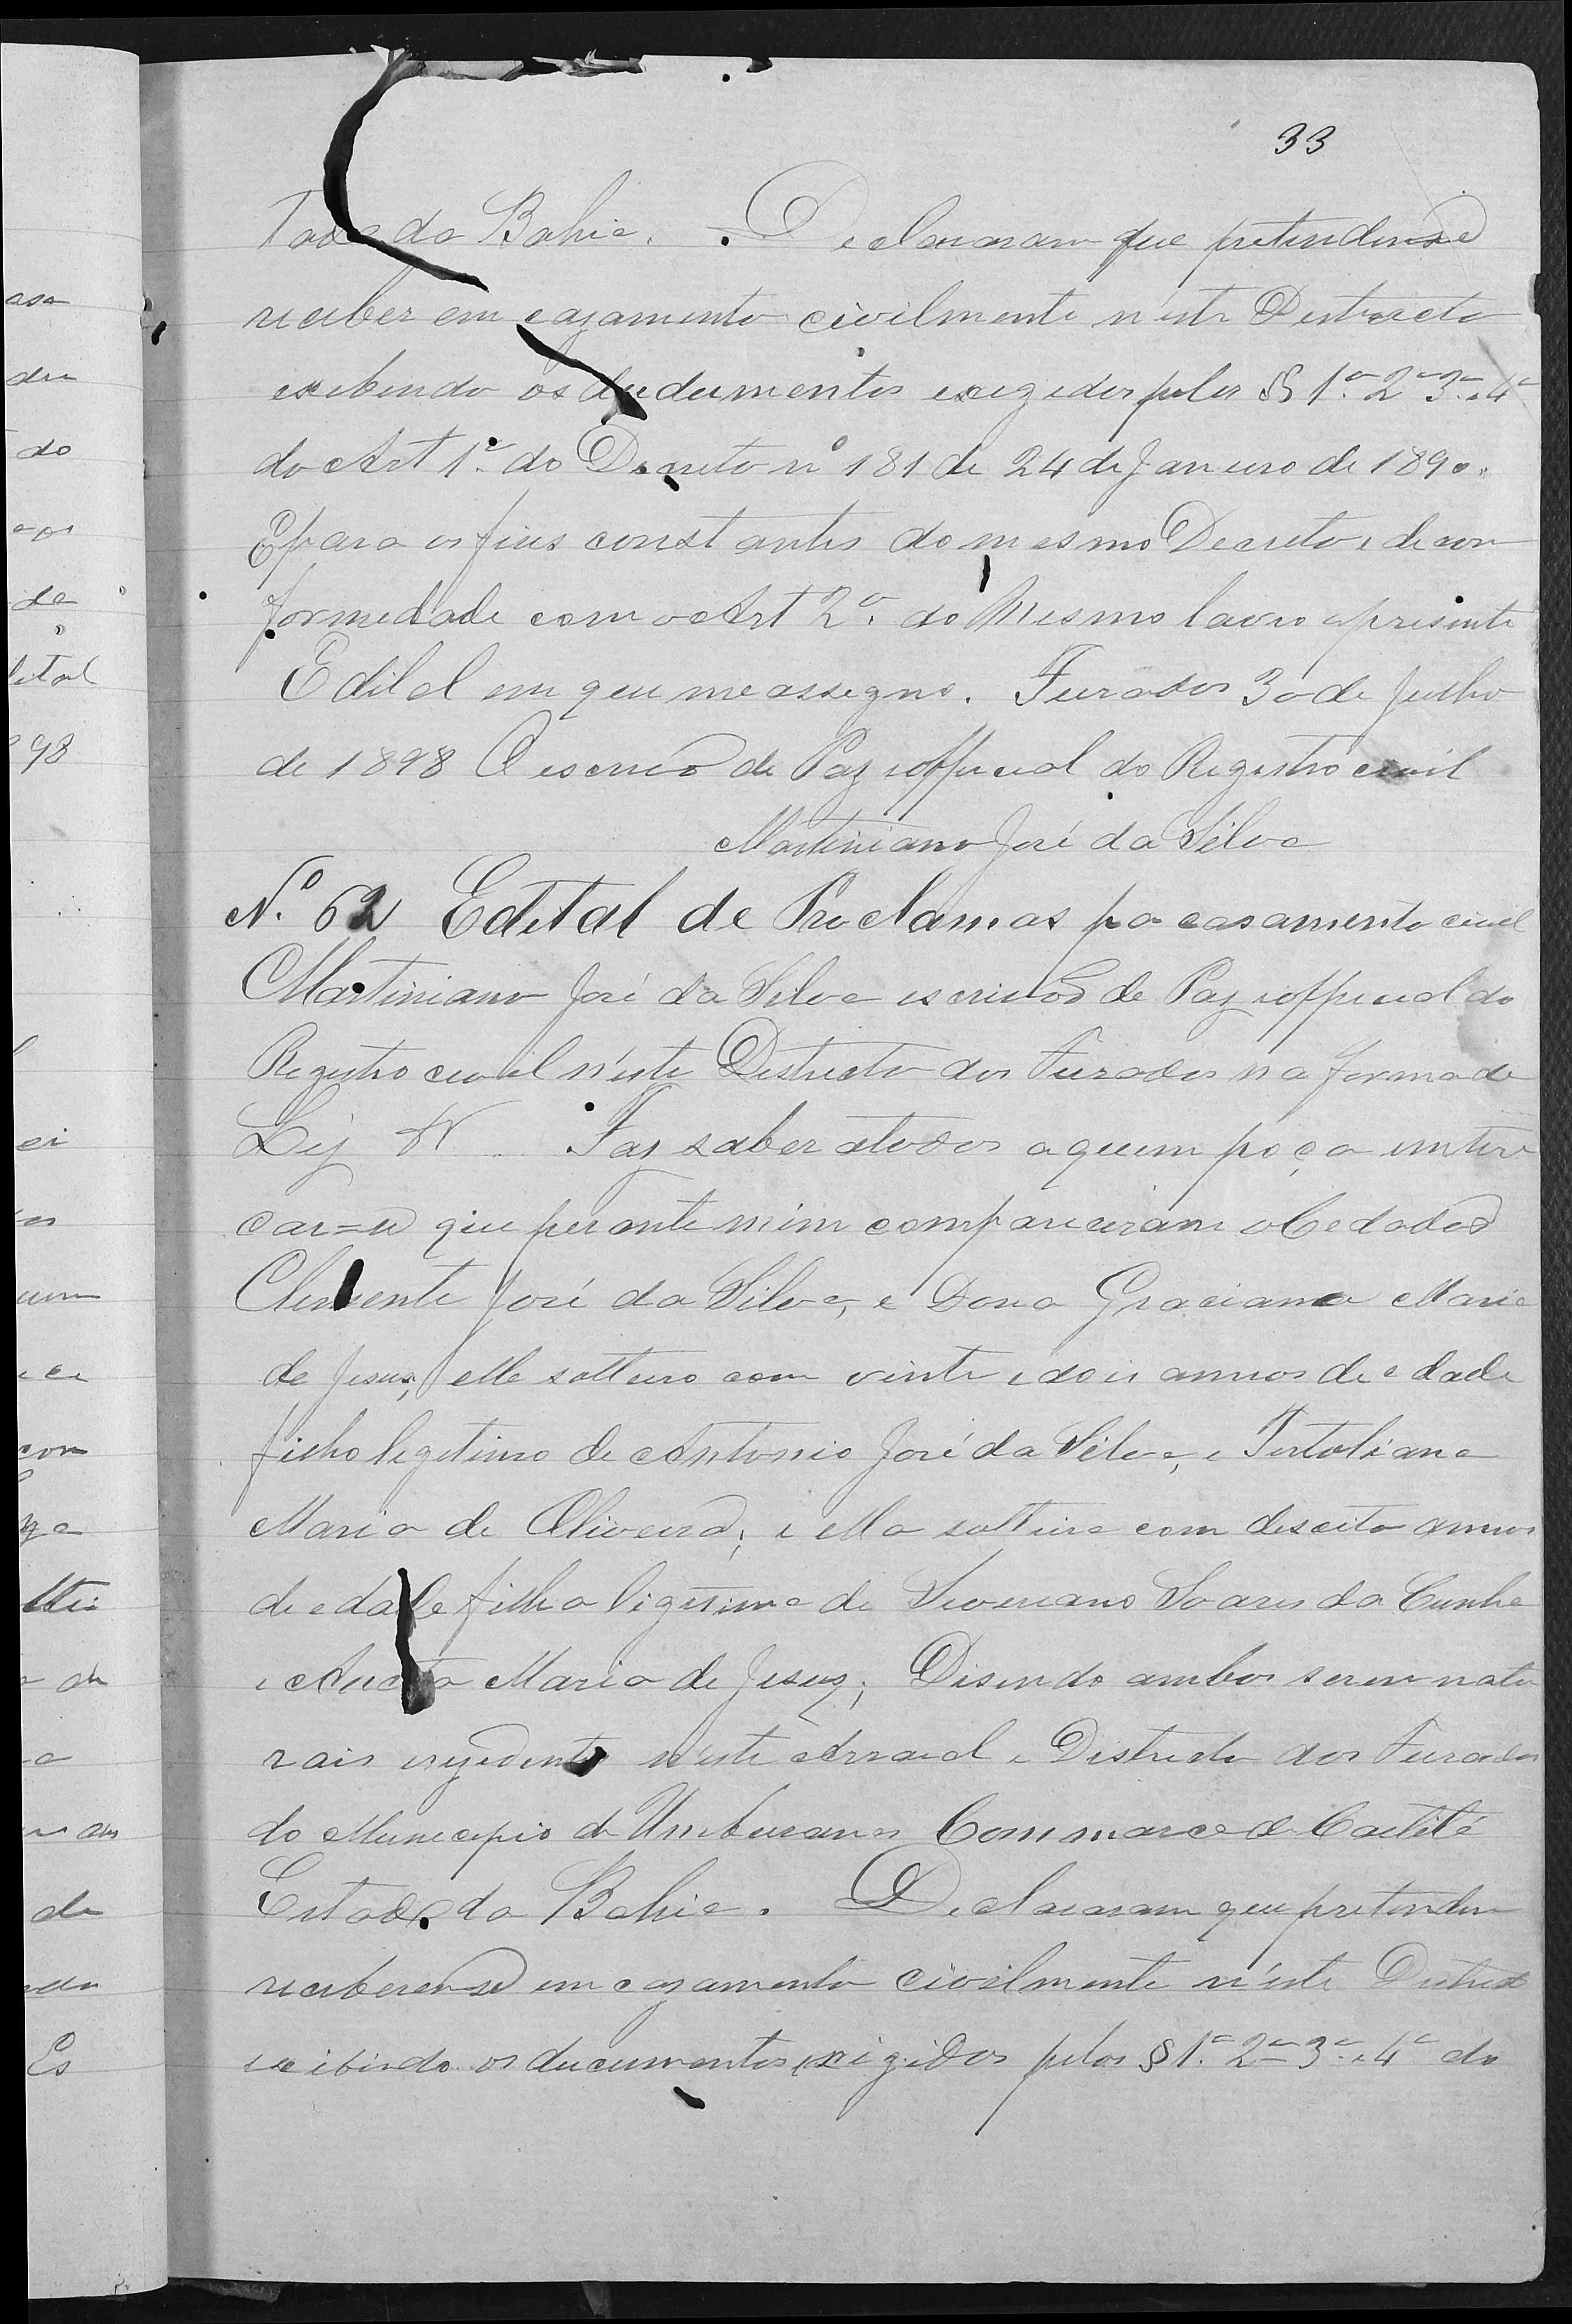 33
tado da Bahia. Declararam que pretendem se
receber em cazamento civilmente n'este Destricto
exebindo os ducumentos exegedos pelos §§ 1º 2º 3º e 4º
do Art 1º do Decreto nº 181 de 24 de Janeiro de 1890.
E para os fins constantes do mesmo Decreto e de con
formedade com o Art 2º do Mesmo lavro o presente
Edital em que me assegno. Furados 30 de Julho
de 1898 O escrivão de Paz e official do Registro civil
Martiniano José da Silva
Nº 62 Edital de Proclamas pa casamento civil
Martiniano José da Silva escrivão de Paz e official do
Registro civil n'este Destricto dos Furados na forma da
Ley &. Faz saber a todos a quem poça inter
car=se que perante mim compareceram o Cedadão
Clemente José da Silva, e Dona Graciana Maria
de Jesus, elle solteiro com vinte e dois annos de edade
filho legetimo de Antonio José da Silva, e Tertoliana
Maria de Oliveira; e ella solteira com desoito annos
de edade filha ligetima de Severiano Soares da Cunha
e Maria de Jesus; Disendo ambos serem natu
rais e rezidentes n'este Arraial e Districto dos Furados
do Municepio de Umburanas Commarca de Caetité
Estado da Bahia. Declararam que pretendem
receberem-se em cazamento civilmente n'este Districto
exibindo os ducumentos exigidos pelos § 1º 2º 3º e 4º do
asa
do
de
98
ei
con
de
Es